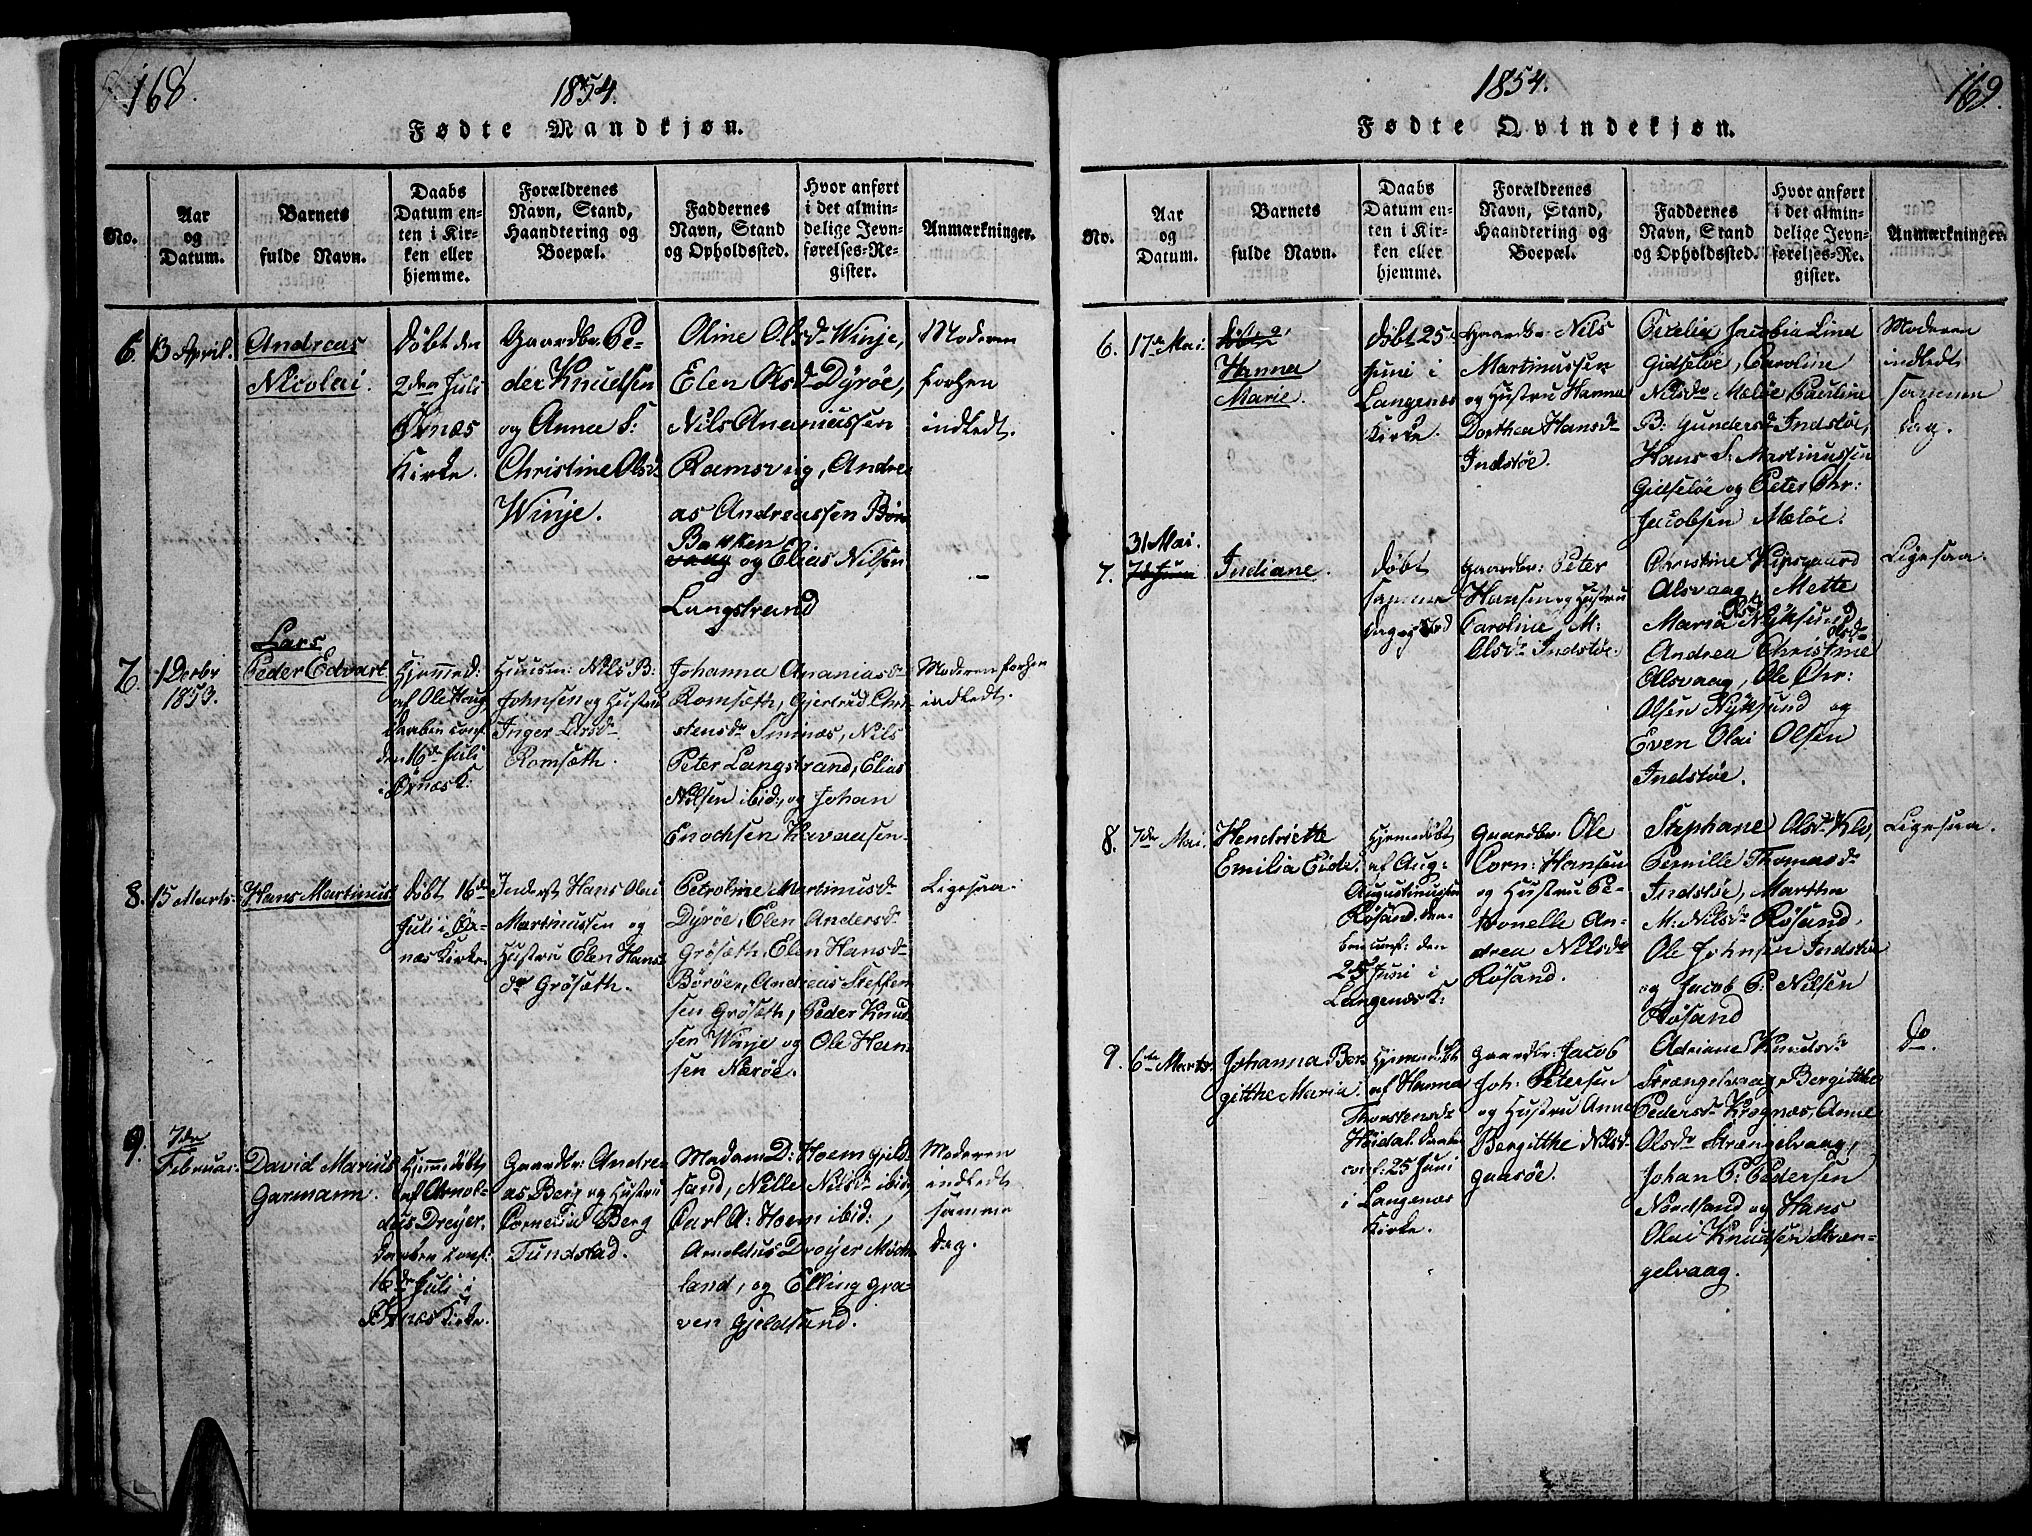 168.
1854.
Fødte Mandkjøn.
No.
Aar
og
Datum.
Barnets
fulde Navn.
Daabs
Datum en-
ten i Kir-
ken eller
hjemme.
Forældrenes
Navn, Stand,
Haandtering og
Boepæl.
Faddernes
Navn, Stand
og Opholdssted.
Hvor anført
i det almin-
delige Jevn-
førelses-Re-
gister.
Anmærkninger.
6.
13 April.
Andreas
Nicolai.
Døbt den
2den Juli
Øxnæs
Kirke.
Gaardbr. Pe-
der Knudsen
og Anna S:
Christine Olsd
Winje.
Oline Olsdr Winje,
Elen Olsdr Dyrøe,
Nils Ananiassen
Ramsvig, Andre-
as Andreassen
Bakken
og Elias Nilsen
Langstrand
Moderen
forhen
indledt.
7.
1 Decbr
1853.
Lars
Peder Edvart
Hjemmed:
af Ole Haug
Daaben conf.
den 16de Juli
i Øxnæs K.
Huusm: Nils B:
Johnsen og Hustru
Inger Larsdr
Romsæth.
Johanna Ananiasdr
Romsæth, Gjertrud Chri-
stensdr Smines, Nils
Peter Langstrand, Elias
Nilsen ibid:, og Johan
Enochsen
Moderen forhen
indledt.
8.
15 Marts
Hans Martinus
Døbt 16de
Juli i Øx-
næs Kirke.
Inderst Hans Olai
Martinussen og
Hustru Elen Hans-
dr Grøsæth.
Petroline Martinusdr
Dyrøe, Elen Andersdr
Grøsæth, Elen Hansdr
Børøen, Andreas Steffen-
sen Grøsæth, Peder Knud-
sen Winje og Ole Han-
sen Nærøe.
Ligesaa.
9.
7de
Februar.
David Marius
Garmann.
Hjemmedøbt
af Arnol-
dus Dreyer.
Daaben conf.
16de Juli i
Øxnæs Kirke.
Gaardbr: Andre-
as Berg og Hustru
Cornelia Berg
Tundstad.
Madam D: Hoem Gjeld-
sand, Nille Nilsdr ibid,
Carl A: Hoem ibid:,
Arnoldus Dreyer
land, og Elling Gra-
ven Gjeldsand.
Moderen
indledt
samme
Dag.
169.
1854.
Fødte Qvindekjøn.
No.
Aar
og
Datum.
Barnets
fulde Navn.
Daabs
Datum en-
ten i Kir-
ken eller
hjemme.
Forældrenes
Navn, Stand,
Haandtering og
Boepæl.
Faddernes
Navn, Stand
og Opholdssted.
Hvor anført
i det almin-
delige Jevn-
førelses-Re-
gister.
Anmærkninger.
6.
17de Mai.
Hanna
Marie.
Døbt 25
Juni i
Langenæs
Kirke.
Gaardbr. Nils
Martinussen
og Hustru Hanna
Dorthea Hansdr
Indstøe.
Cecelie Jacobia Lind
Gidsløe, Caroline
Nilsdr Meløe, Pauline
B: Gundersdr Indstøe,
Hans S: Martinussen
Gidsløe og Peter Chr:
Jacobsen Meløe.
Moderen
indledt
samme
Dag.
7.
31 Mai.
Indiane.
Døbt
samme
Dag og Sted
Gaardbr: Peter
Hansen og Hustru
Caroline M:
Olsdr Indstøe.
Christine
Alsvaag, Mette
Maria Olsdr Nyksund
Andrea Christine Olsdr
Alsvaag, Ole Chr:
Olsen Nyksund og
Even Olai Olsen
Indstøe.
Ligesaa.
8.
7de Mai.
Hendriette
Emilia Eide.
Hjemmedøbt
af Aug:
Augustinussen
Røsand. Daa-
ben conf: den
25 Juni i
Langenæs K:
Gaardbr. Ole
Corn: Hansen
og Hustru Pe-
tronelle An-
drea Nilsdr
Røsand.
Stephane Olsdr Klo,
Pernille Thomasdr
Indstøe, Martha
M: Nilsdr Røsand,
Ole Johnsen Indstøe
og Jacob P: Nilsen
Røsand
Ligesaa.
9.
6te Marts.
Johanna Ber-
gitthe Maria.
Hjemmedøbt
af Hanna
Thorstensdr
Høidal. Daaben
conf: 25 Juni
i Langenæs
Kirke.
Gaardbr: Jacob
Joh: Petersen
og Hustru Anne
Bergitthe Nilsdr
Gaasøe.
Adriane Knudsdr
Strængelvaag, Bergitthe
Pedersdr Krognæs, Anne
Olsdr Strængelvaag,
Johan P: Pedersen
Nordsand og Hans
Olai Knudsen Stræn-
gelvaag.
Do.